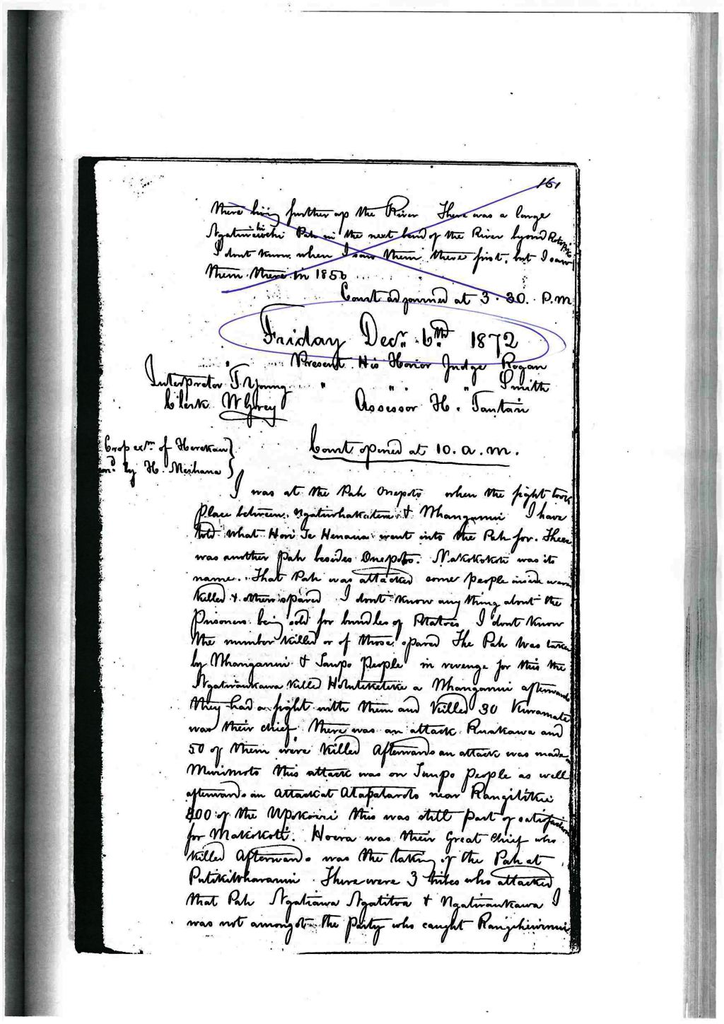 161
there living further up the River There was a large
Pah in the next bend of the River byond
I dont know when I saw them there first, but I saw
them there in 1850
Court adjourned at 3.30. P.m
Friday Decr. 6th 1872
Present His Honor Judge Rogan
Interpreter T Young " " " Smith
Clerk W Grey Assessor H.
Crop exm. of
by H.
Court opened at 10. a. m.
I was at the Pah Onepoto when the fight took
Place between & Whanganui I have
told what Hori Te went into the Pah for. There
was another pah besides Onepoto. was its
name. That Pah was attacked some people inside were
Killed & others spared I dont know any thing about the
Prisoners being sold for bundles of Potatoes I dont Know
the number killed or of those spared The Pah was taken
by Whanganui & Taupo People in revenge for this the
Ngatiraukawa Killed a Whanganui afterwards
they had a fight with them and Killed 30
was their chief there was an attack and
50 of them were killed Afterwards an attack was made
this attack was on Taupo People as well
afterwards an Attack at near Rangitikei
of the this was still part of satisfaction
for was their Great Chief who
killed Afterwards was the taking of the Pah at
There were 3 tribes who attacked
that Pah & Ngatiraukawa I
was not amongst the Party who caught